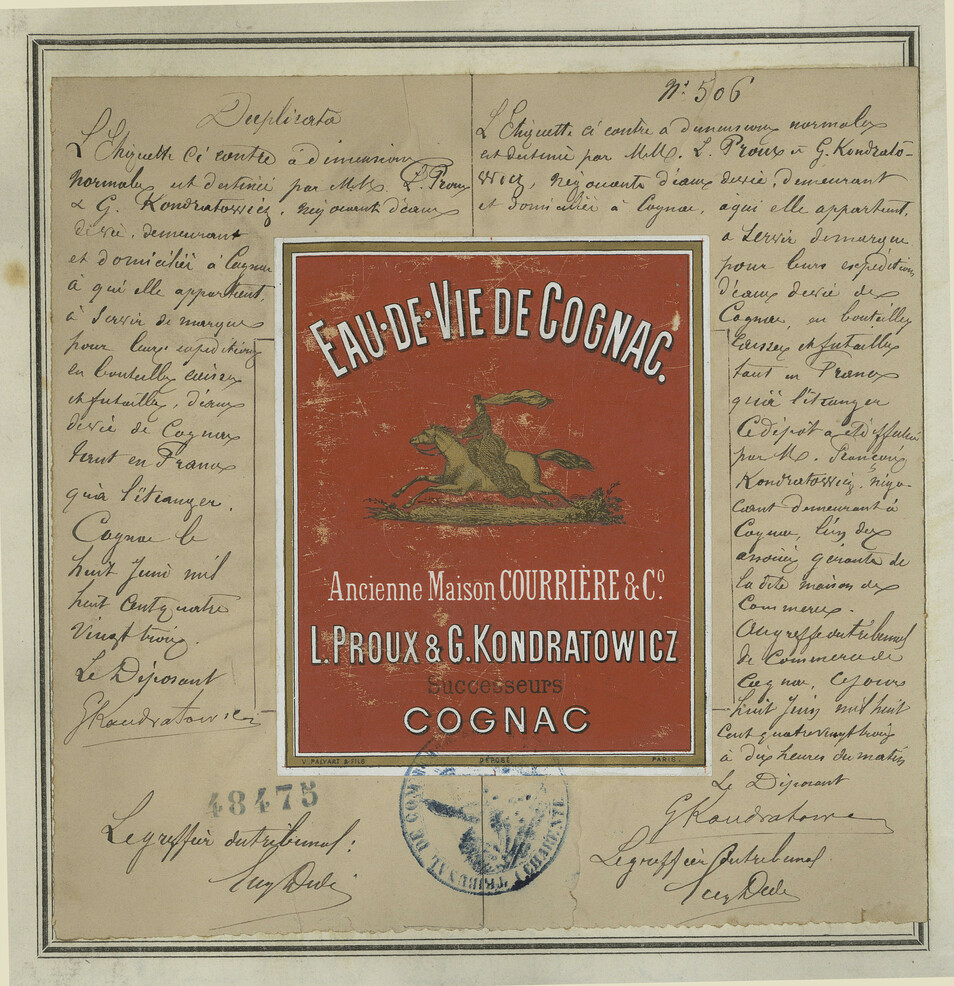 Duplicata
L'Etiquette ci contre à dimensions
normales est destinée par M.M. L. Proux
& G. Kondratowicz, négociants d'eaux
de vie, demeurant
et domiciliés à Cognac
à qui elle appartient,
à servir de marque
pour leurs expéditions
en bouteilles caisses
et futailles, d'eaux
de vie de Cognac
tant en France
qu'à l'étranger.
Cognac le
huit Juin mil
huit cent quatre
vingt trois.
Le Déposant
GKondratowicz
48475
Le greffier du tribunal:
N° 506
L'Etiquette ci contre à dimensions normales
est destinée par M.M. L. Proux et G. Kondrato-
wicz, négociants d'eaux de vie, demeurant
et domiciliés à Cognac, à qui elle appartient,
à servir de marque
pour leurs expéditions
d'eaux de vie de
Cognac, en bouteilles
caisses et futailles
tant en France
qu'à l'étranger
Ce dépôt a été effectué
par M. François
Kondratowicz, négo-
ciant demeurant à
Cognac, l'un des
associés gérants de
la dite maison de
Commerce.
Au greffe du tribunal
de Commerce de
Cognac, ce jour
huit Juin mil huit
cent quatre vingt trois
à dix heures du matin
Le Déposant
GKondratowicz
Le greffier du tribunal
EAU-DE-VIE DE COGNAC.
Ancienne Maison COURRIÈRE & Cº.
L. PROUX & G. KONDRATOWICZ
Successeurs
COGNAC
V. PALYART & FILS DÉPOSÉ PARIS.
TRIBUNAL DE COMMERCE (CHARENTE)